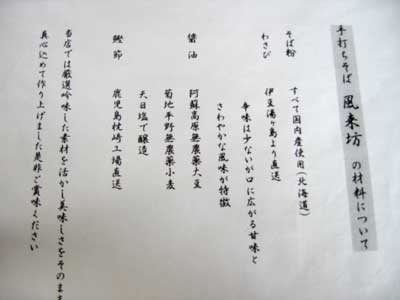 手打ちそば 風来坊 の材料について
そば粉 すべて国内産使用(北海道)
わさび 伊豆湯ヶ島より直送
辛味は少ないが口に広がる甘味と
さわやかな風味が特徴
醤油 阿蘇高原無農薬大豆
菊地平野無農薬小麦
天日塩で醸造
鰹節 鹿児島枕崎工場直送
当店では厳選吟味した素材を活かし美味しさをそのまま
真心込めて作り上げました是非ご賞味ください